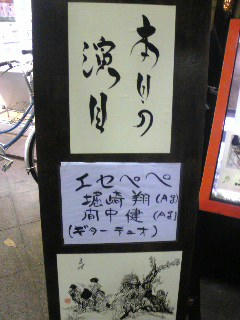 本日の
演目
エセペペ
堀崎翔(A.g)
高中健(A.g)
(ギターデュオ)